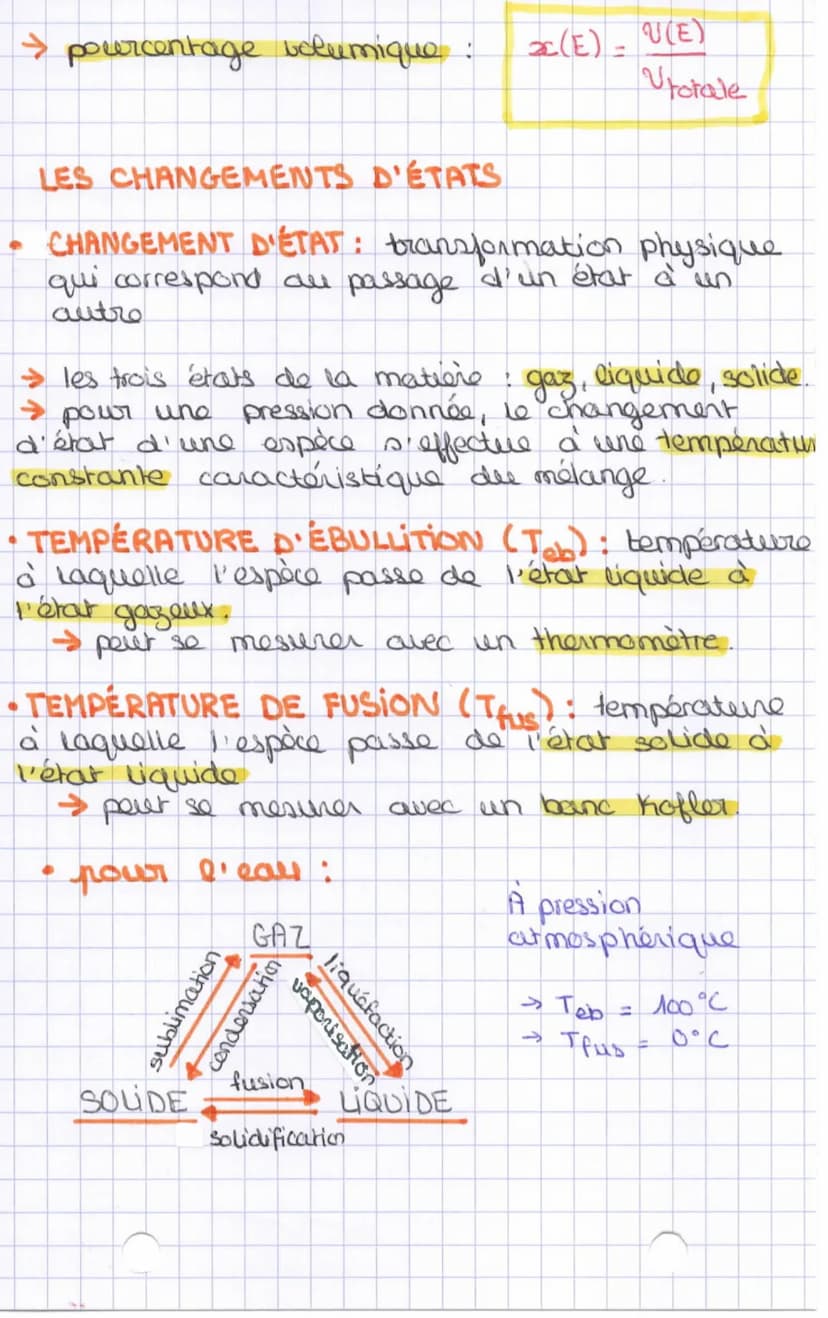 → pourcentage volumique : x(E) = V(E) / Vtotale
LES CHANGEMENTS D'ÉTATS
• CHANGEMENT D'ÉTAT : transformation physique
qui correspond au passage d'un état à un
autre
→ les trois états de la matière : gaz, liquide, solide.
→ pour une pression donnée, le changement
d'état d'une espèce s'effectue à une températur
constante caractéristique du mélange.
• TEMPÉRATURE D'ÉBULLITION (Teb) : température
à laquelle l'espèce passe de l'état liquide à
l'état gazeux.
→ peut se mesurer avec un thermomètre.
• TEMPÉRATURE DE FUSION (Tfus) : température
à laquelle l'espèce passe de l'état solide à
l'état liquide
→ peut se mesurer avec un banc Kofler.
• pour l'eau :
À pression
atmosphérique
→ Teb = 100°C
→ Tfus = 0°C
GAZ
sublimation
condensation
vaporisation
liquéfaction
SOLIDE
fusion
LIQUIDE
solidification